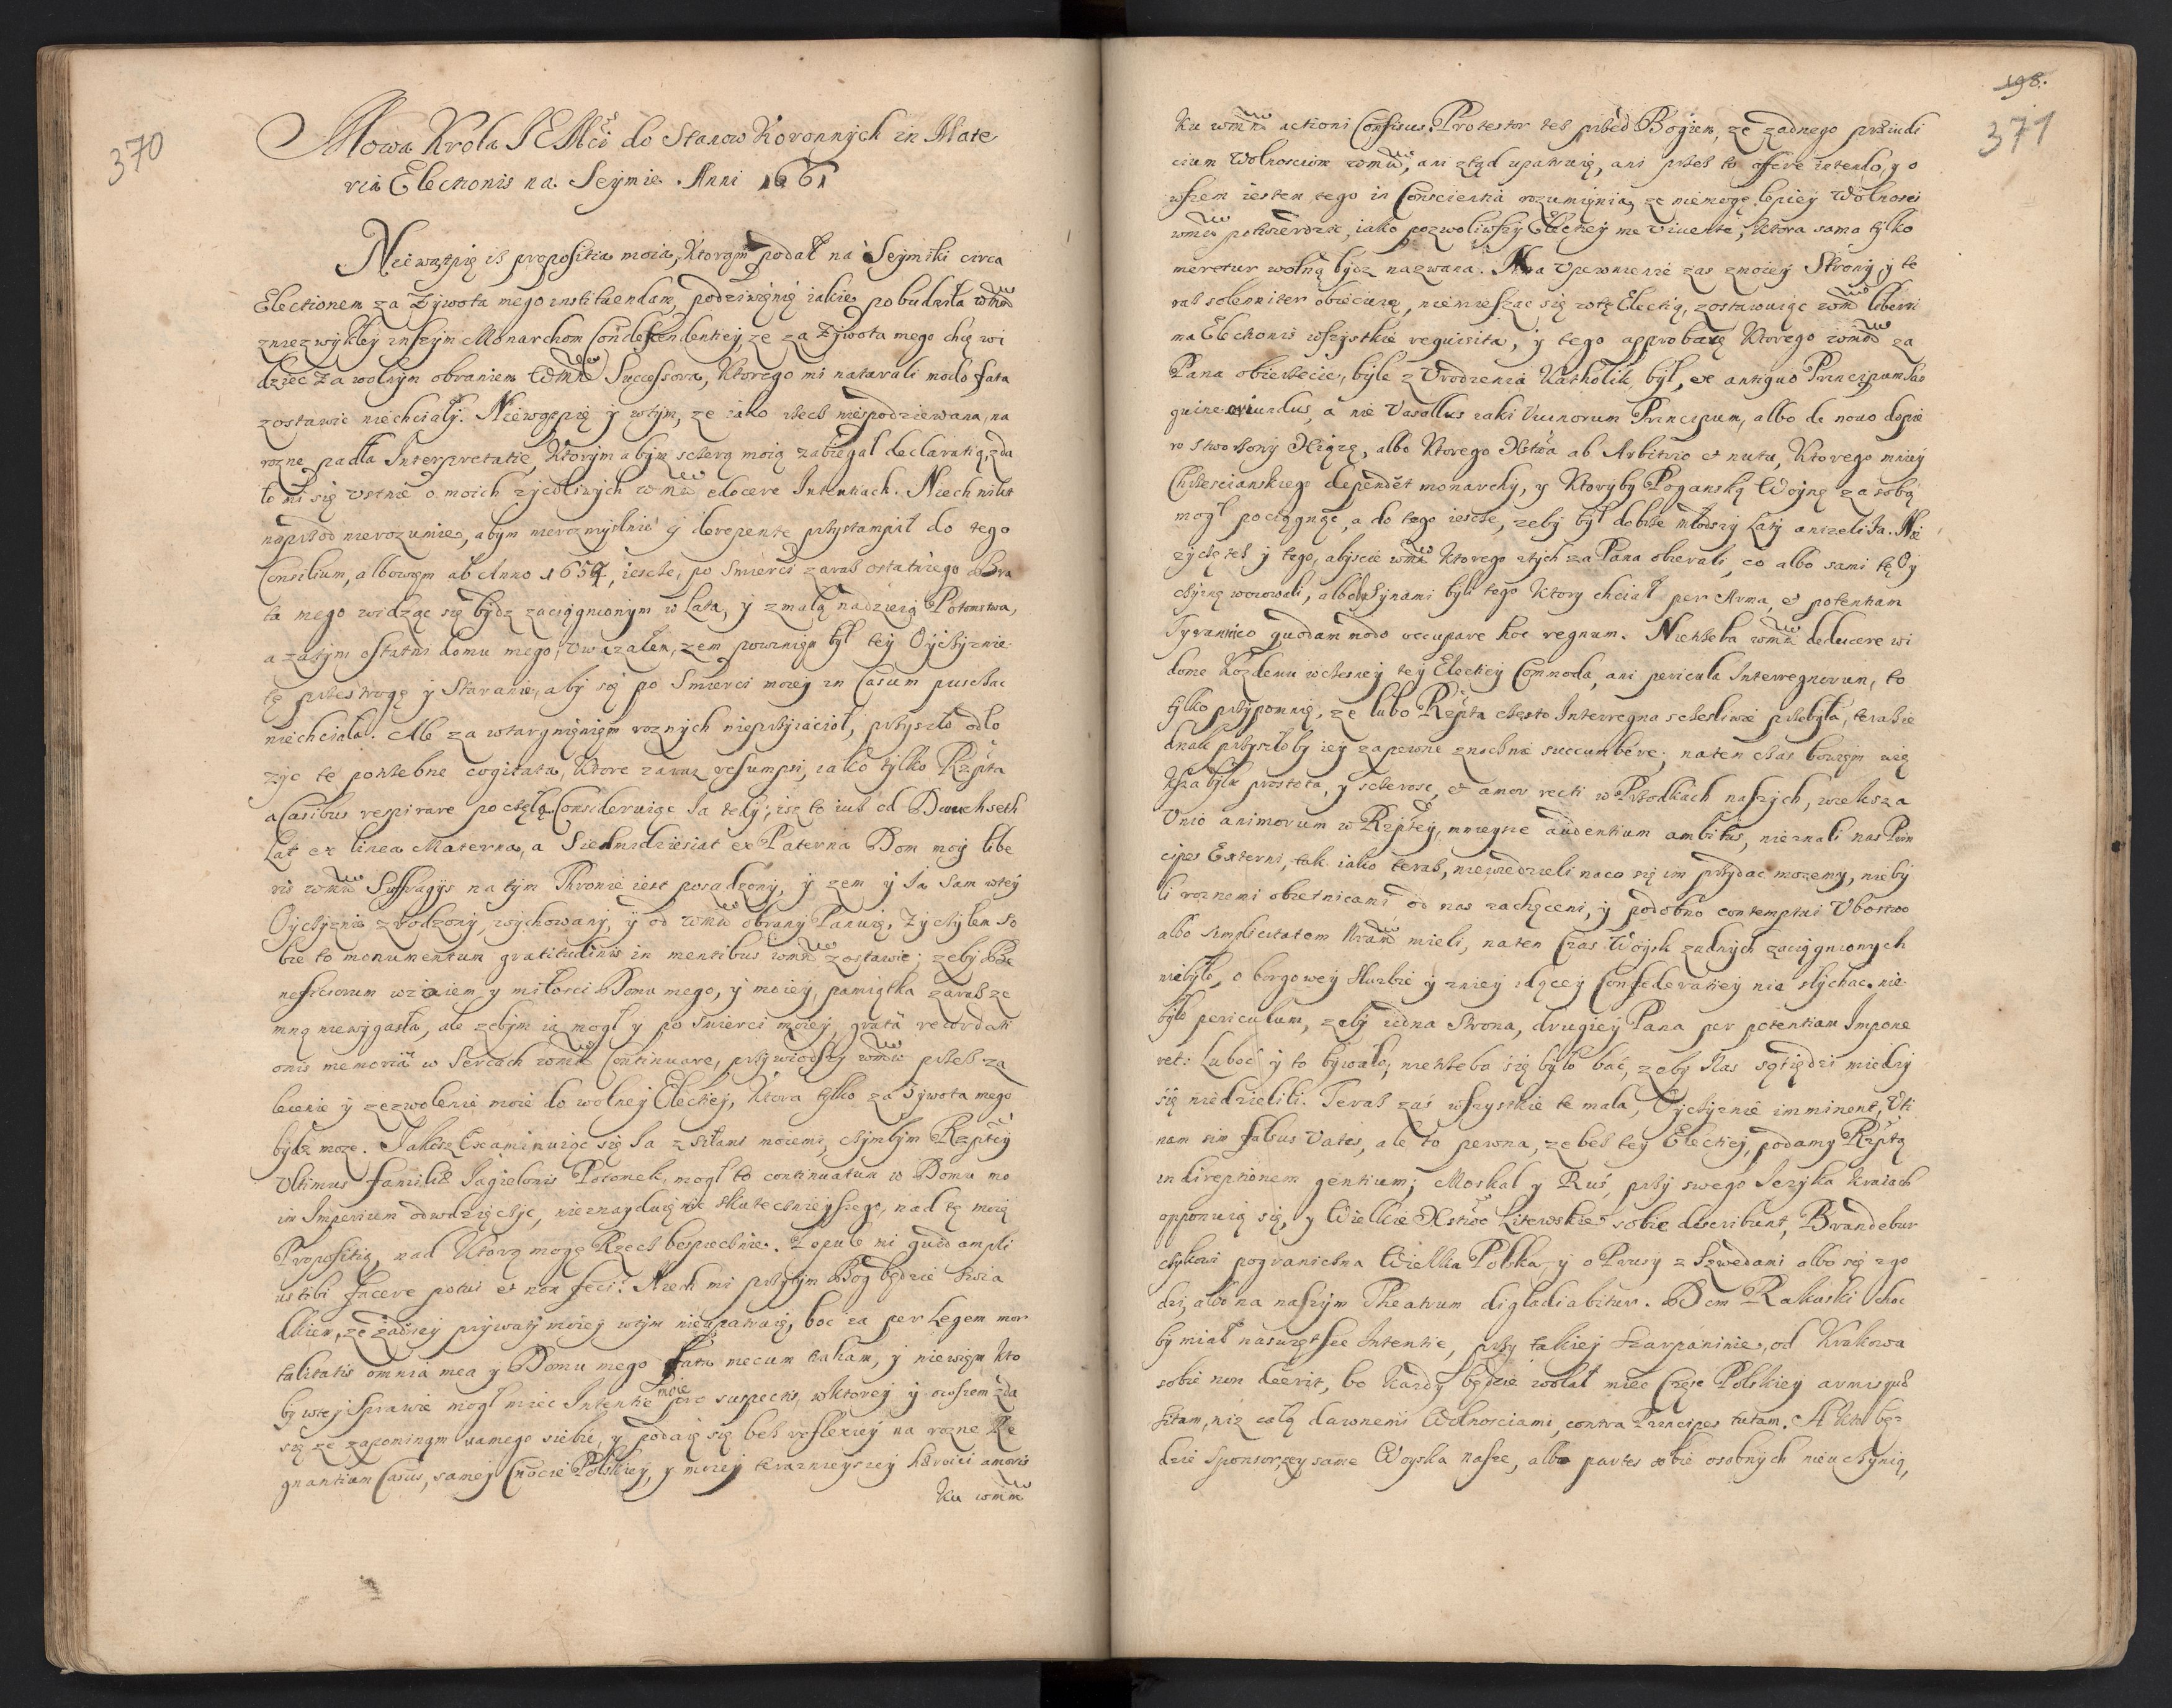 370
Mowa Krola JEMści do Stanow Koronnych in Mate
ria Electionis na Seymie Anni 1661
Niewątpię iż propositia moia, Ktorąm podał na Seymiki circa
Electionem za Zywota mego instituendam, podziwięnię iakie pobudziła wmw
zniezwykłey inszym Monarchom Condescendentiey, ze za Zywota mego chcę wi
dzieć za wolnym obraniem Wmw Successora, Ktorego mi naturali modo fata
zostawic niechciały. Niewątpię y wtym, ze iako rzecz niespodziewana, na
rozne padła Interpretatie, Ktorym abym sczerą moią zabiegał declaratią, zda
ło mi się ustnie o moich zyczliwych wmw edocere Intentiach. Niech nikt
naprzod nierozumie, abym nierozmyslnie y derepente przystąmpił do tego
Consilium, albowiem ab Anno 1654, iescze, po Smierci zaraz ostatniego Bra
ta mego widząc się bydz zaciągnionym w Lata, y z małą nadzieią Potomstwa,
a zatym ostatni domu mego, Uwazałem, zem powinięn był tey Oyczyznie
tę przestrogę y Staranie, aby się po Smierci moiey in Casum puszczac
niechciała. Ale za wtargnięnięm roznych nieprzyiacioł, przyszło odło
zyc te potrzebne cogitata, Ktore zaraz resumpsi, iako tylko Rzptа
a Casibus respirare poczęła. Consideruiąc Ia tedy, isz to iuz od Dwuch seth
Lat ex linea Materna, a Siedmidziesiąt ex Paterna Dom moy libe
ris wmw Suffragijs na tym Thronie iest posadzony, y zem y Ia Sam wtey
Oyczyznie zrodzony, wychowany, y od wmw obrany Panuię, Zyczyłem So
bie to monumentum gratitudinis in mentibus wmw zostawic; zeby Be
neficiorum wzaiem y miłosci Domu mego, y moiey, pamiątka zaraz ze
mną niewygasła, ale zebym ią mogł y po Smierci moiey, grata recordati
onis memoria w Sercach wmw Continuare, przywiodszy wmw przez za
lecenie y zezwolenie moie do wolney Electiey, Ktora tylko za Zywota mego
bydz moze. Jakosz Examinuiąc się Ia z siłami moiemi, czymbym Rzptey
Ultimus familiæ Jagielonis Potomek, mogł to continuatum w Domu mo
im Imperium odwdzięczyc, nieznayduię nic skutecznieyszego, nad tę moię
Propositią, nad Ktorą mogę Rzecz bespiecznie. Popule mi quid ampli
us tibi facere potui et non feci? Niech mi przytym Bog będzie Swia
dkiem, ze zadney prywaty moiey wtym nieupatruię, boc ia per Legem mor
talitatis omnia mea y Domu mego fata mecum traham, y niewiem kto
by wtey Sprawie mogł miec Intentie moie pro suspectis, wktorey y owszem zda
się ze zapominąm samego siebie, y podaię się bez reflexiey na rozne Re
gnantium Casus, samey Cnocie Polskiey, y moiey teraznieyszey heroici amoris
Ku wmw
198.
371
Ku wmw actioni Confisus. Protestor tez przed Bogiem, ze zadnego præiudi
cium Wolnosciom wmw, ani ztąd upatruię, ani przez to offere intendo, y o
wszem iestem tego in Conscientia rozumięnia, ze niemogę lepiey Wolnosci
wmw potwierdzic, iako pozwoliwszy Electiey me Vivente, Ktora sama tylko
meretur wolną bydz nazwana. Na Upewnienie zas zmoiey Strony, y te
raz solenniter obiecuię, niemieszac się wtę Electią, zostawuiąc wmw liberri
ma Electionis wszystkie requisita, y tego approbuię Ktorego wmw za
Pana obierzecie, byle z Urodzenia Katholik był, ex antiquo Principum San
guine oriundus, a nie Vasallus iaki Vicinorum Principum, albo de nouo dopie
ro stworzony Xiąże, albo Ktorego Xstwa ab Arbitrio et nutu, Ktorego mniey
Chrzescianskiego dependet monarchy, y Ktoryby Poganską Woynę za sobą
mogł pociągnąc, a do tego iescze, zeby był dobrze młodszy Laty anizeli Ia. Nie
zyczę tez y tego, abyscie wmw Ktorego ztych za Pana obierali, co albo sami tę Oy
czyznę woiowali, albo Synami byli tego Ktory chciał per Arma, et potentiam
Tyrannico quodam modo occupare hoc regnum. Nietrzeba wmw deducere wi
dome Kozdemu wczesney tey Electiey Commoda, ani pericula Interregnorum, to
tylko przypomnię, ze lubo Rzpta często Interregna sczesliwie przebyła, teraz ie
dnak przyszłoby iey zapewne znacznie succumbere; na ten czas bowiem wię
ksza była prostota, y sczerosc, et amor recti w Przodkach naszych, wieksza
Unio animorum w Rzptey, mnieysze audentium ambitus, nieznali nas Prin
cipes Externi, tak iako teraz, niewiedzieli na co się im przydac mozemy, nieby
li roznemi obietnicami od nas zachęceni, y podobno contemptui Ubostwo
albo simplicitatem mieli, na ten Czas Woysk zadnych zaciągnionych
niebyło, o borgowey Sluzbie y zniey idącey Confederatiey nie słychac. nie
było periculum, zeby iedna Strona, drugiey Pana per potentiam Impone
ret: Luboc y to bywało, nietrzeba się było bać, zeby Nas sąsiędzi miedzy
się niedzielili. Teraz zaś wszystkie te mala, Oyczyznie imminent, Uti
nam sim falsus Vates, ale to pewna, ze bez tey Electiey, podamy Rzptą
in direptionem gentium; Moskal y Ruś, przy swego Ięzyka Kraiach
opponuią się, y Wielkie Xstwo Litewskie sobie describunt, Brandebur
czykowi pograniczna Wielka Polska, y o Prusy z Szwedami albo się zgo
dzi, albo na naszym Theatrum digladiabitur. Dom Rakuski choc
by miał naswiętsze Intentie, przy takiey Szarpaninie, od Krakowa
sobie non deerit, bo Kazdy będzie wolał miec Częsc Polskiey armis quæ
sitam, niz całą dawnemi Wolnosciami, contra Principes tutam. A kto bę
dzie sponsor, zey same Woyska nasze, albo partes sobie osobnych nieuczynią,